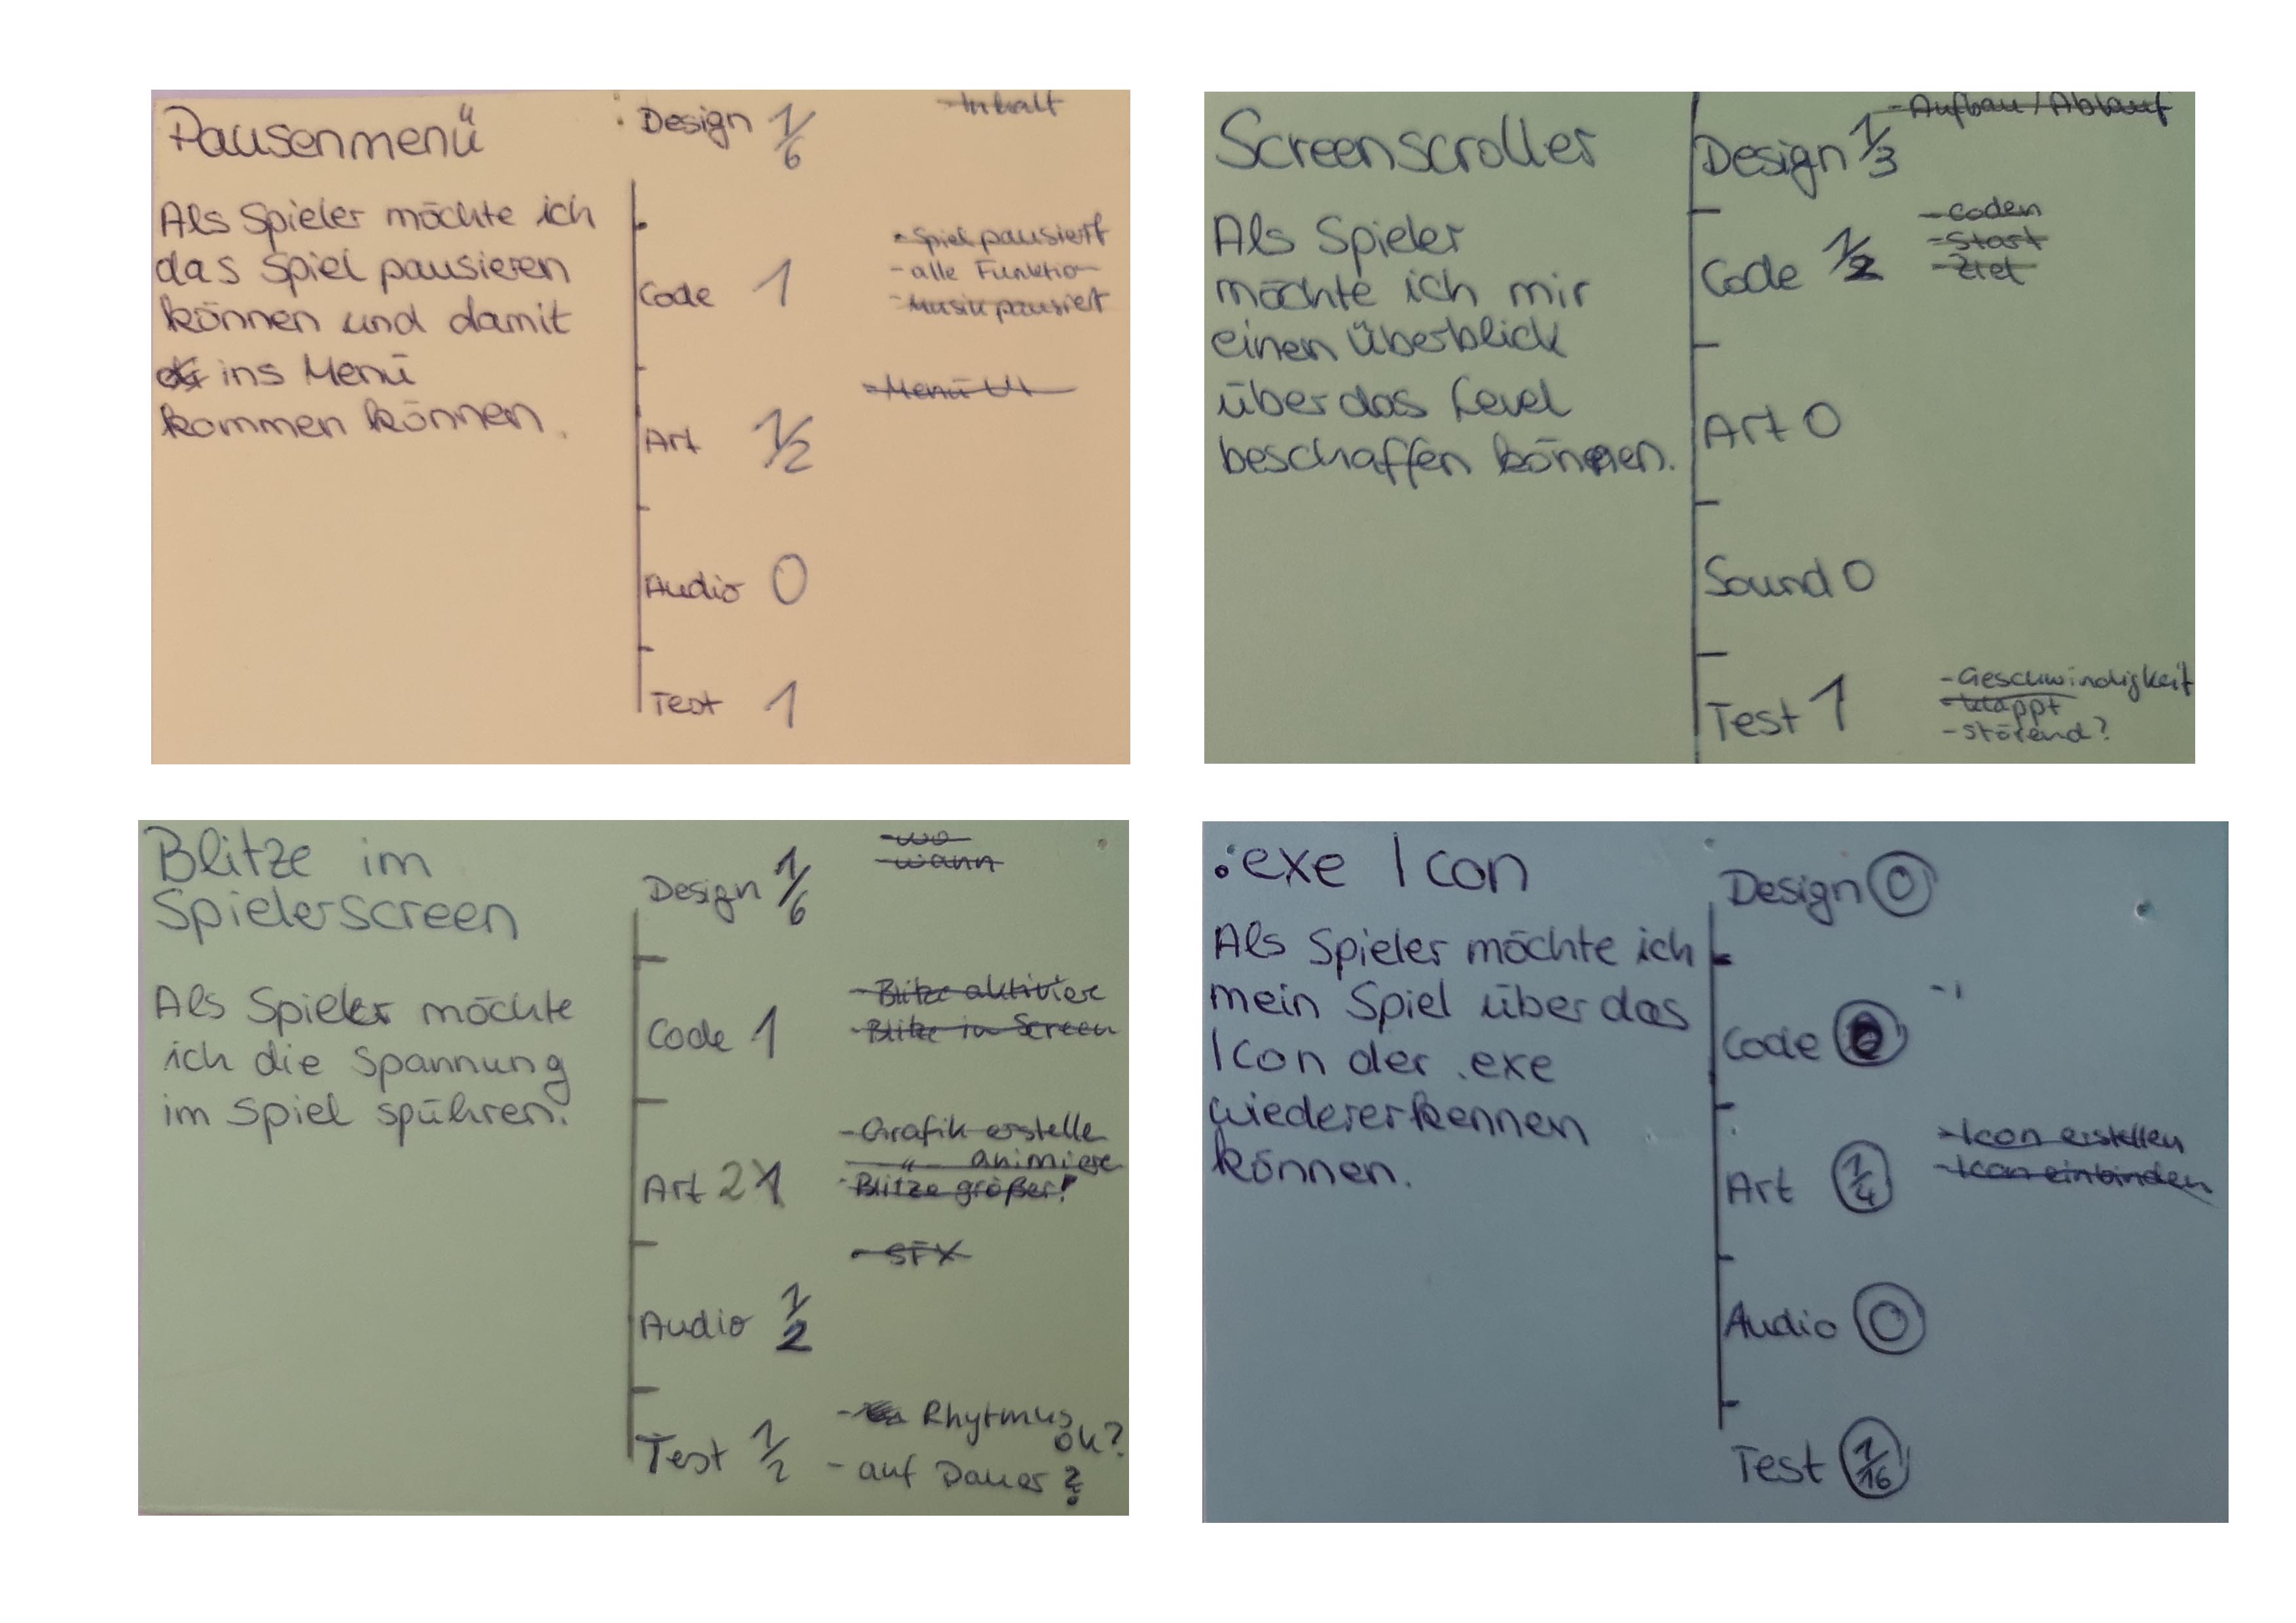 Pausenmenü
Als Spieler möchte ich
das Spiel pausieren
können und damit
ins Menü
kommen können.
Design 1/6
- Inhalt
Code 1
- Spiel pausiert
- alle Funktio
- Musik pausiert
Art 1/2
- Menü UI
Audio 0
Test 1
Screenscroller
Als Spieler
möchte ich mir
einen Überblick
über das Level
beschaffen können.
Design 1/3
- Aufbau/Ablauf
Code 1/2
- Coden
- Start
- Ziel
Art 0
Sound 0
Test 1
- Geschwindigkeit
- klappt
- störend?
Blitze im
Spielerscreen
Als Spieler möchte
ich die Spannung
im Spiel spühren.
Design 1/6
- wo
- wann
Code 1
- Blitze aktiviere
- Blitze in Screen
Art 2 1
- Grafik erstelle
- " - animiere
- Blitze größer!
Audio 1/2
- SFX
Test 1/2
- Rhytmus
ok?
- auf Dauer ?
.exe Icon
Als Spieler möchte ich
mein Spiel über das
Icon der .exe
wiedererkennen
können.
Design 0
Code
Art 1/4
- Icon erstellen
- Icon einbinden
Audio 0
Test 1/16